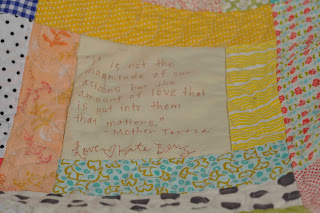 "It is not the
magnitude of our
actions but the
amount of love that
is put into them
that matters."
-Mother Teresa
Love, Kate